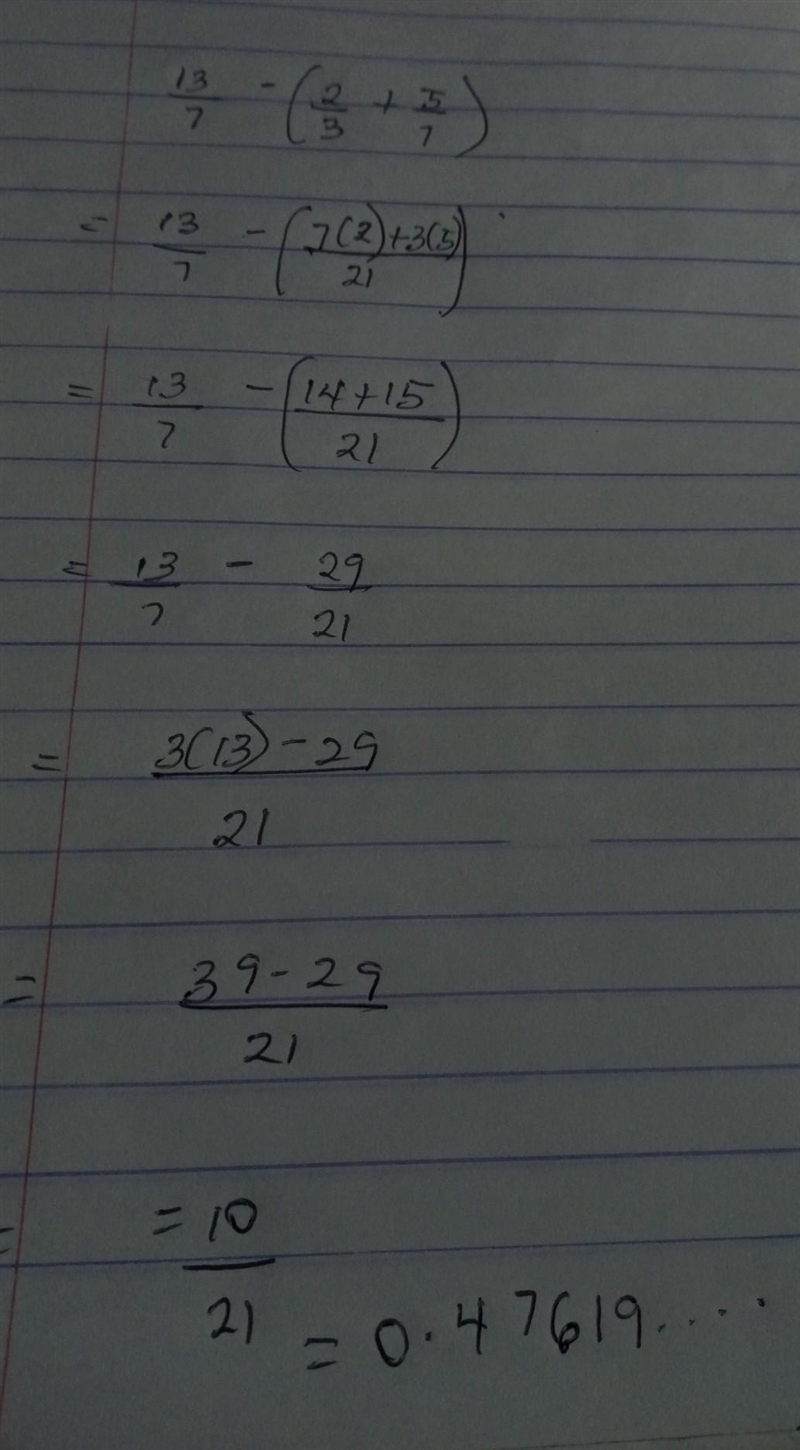 13/7 - (2/3 + 5/7)
= 13/7 - (7(2)+3(5)/21)
= 13/7 - (14+15/21)
= 13/7 - 29/21
= 3(13)-29/21
= 39-29/21
= = 10/21
= 0.47619....